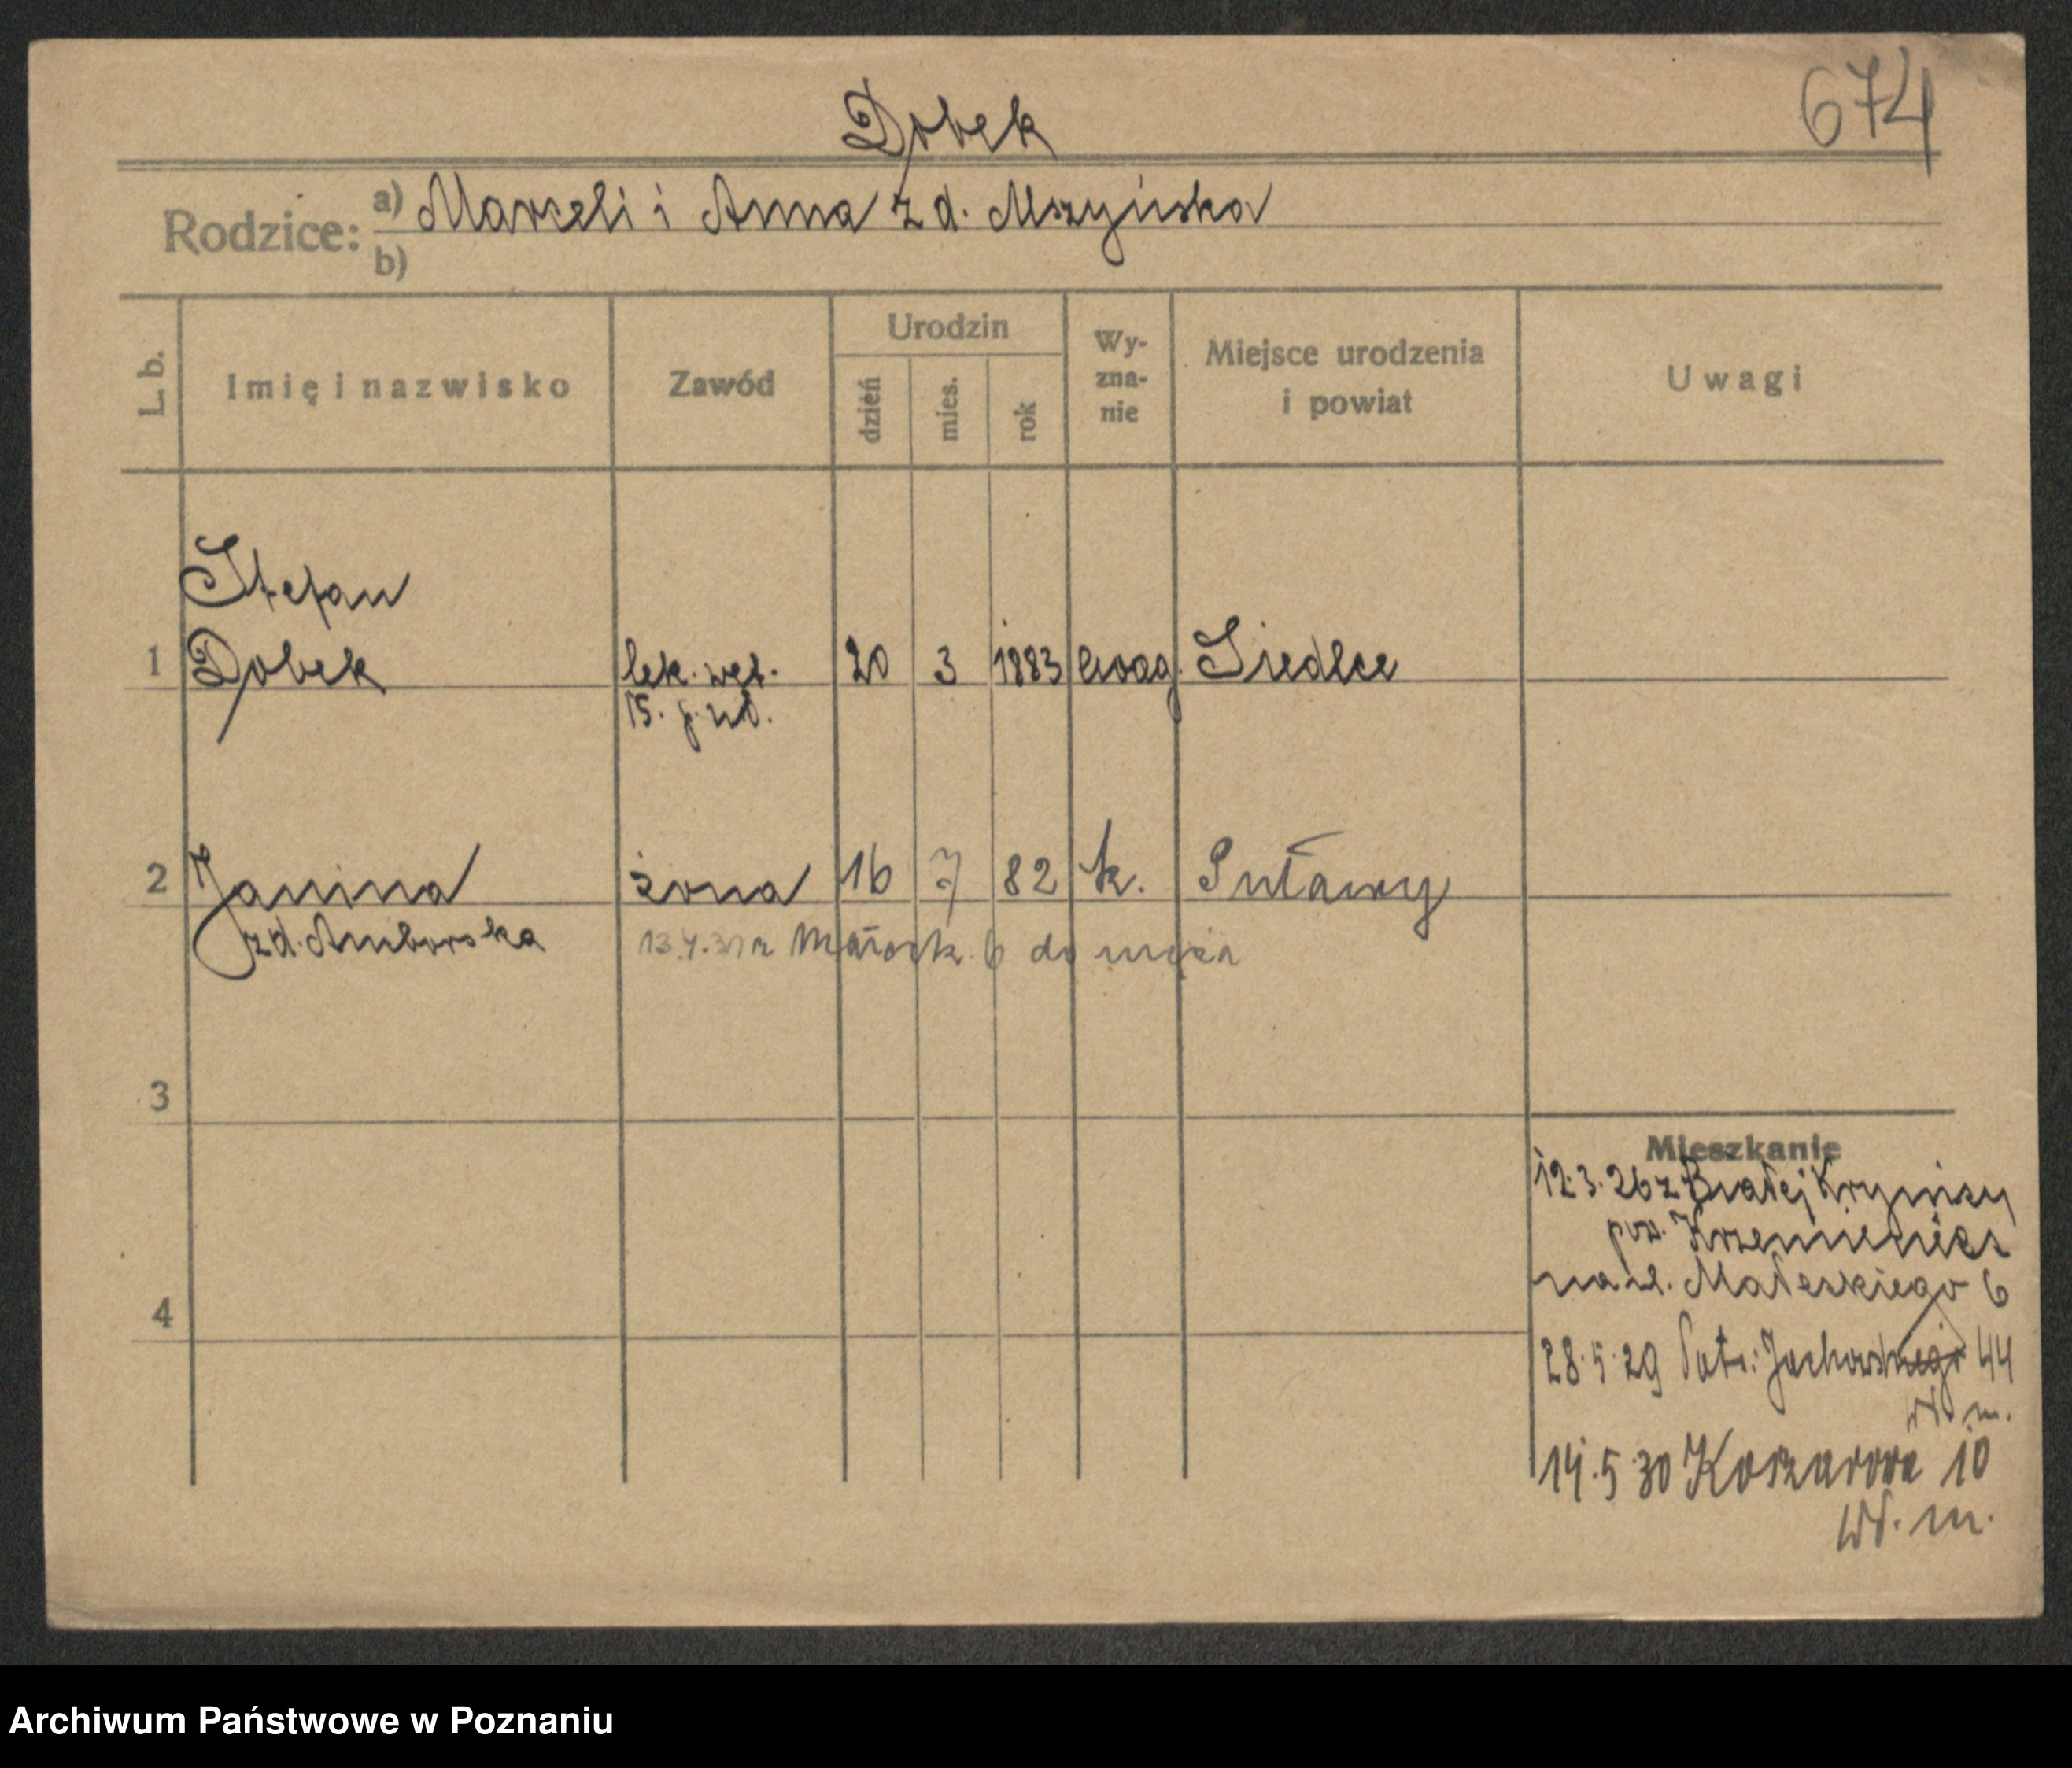 674
Dobek
Rodzice: a) Marceli i Anna z d. Mszyńska
b)
L. b.
Imię i nazwisko
Zawód
Urodzin
dzień
mies.
rok
Wy-
zna-
nie
Miejsce urodzenia
i powiat
Uwagi
Stefan
1 Dobek lek. wet. 20 3 1883 ewag. Siedlce
15. p. uł.
2 Janina żona 16 7 82 k. Puławy
zd. Amborska 13.4.31 r 6 do męża
3
4
Mieszkanie
12.3.26 z Białej Krynicy
pow. Krzemieniec
na ul. Małeckiego 6
28.5.29 Patr. Jackowskiego 44
wł. m.
14.5.30 Koszarowa 10
wł. m.
Archiwum Państwowe w Poznaniu